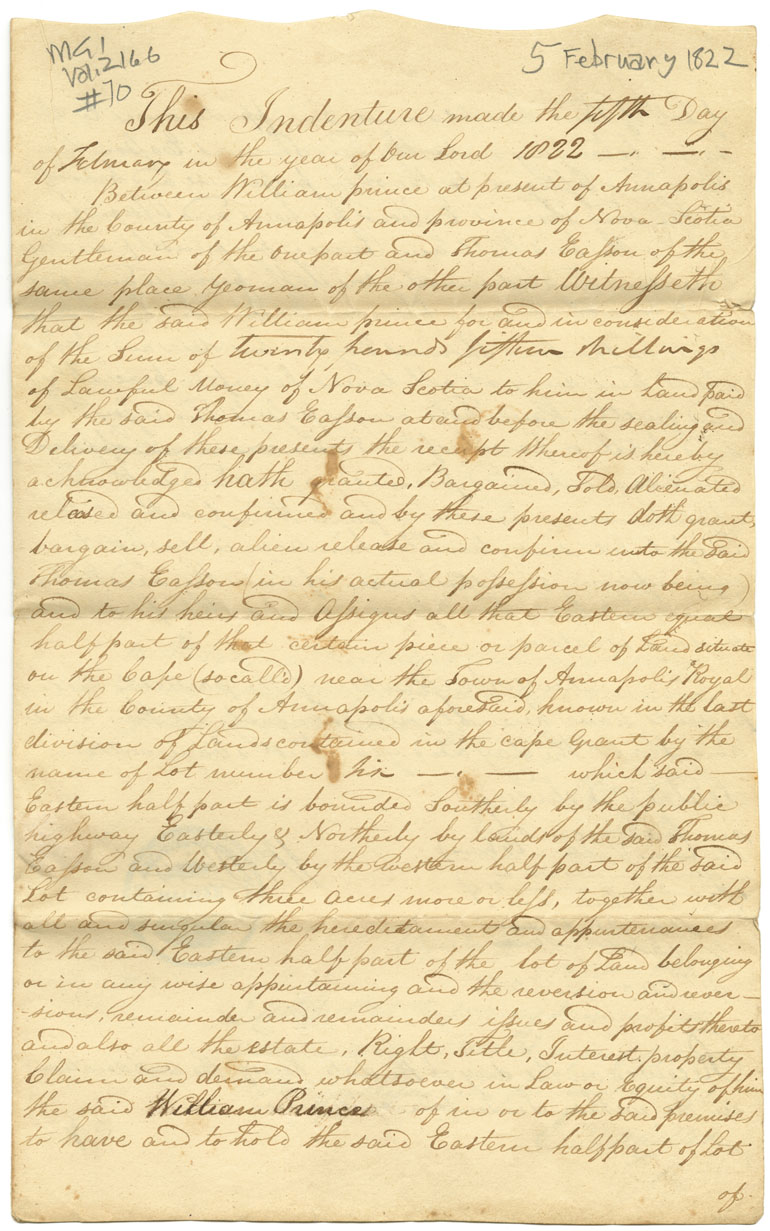 MG1
Vol: 2166
#70
5 February 1822
This Indenture made the fifth Day
of February in the year of Our Lord 1822 —. —. –
Between William prince at present of Annapolis
in the County of Annapolis and province of Nova Scotia
Gentleman of the One part and Thomas Easson of the
same place Yeoman of the other part Witnesseth
that the said William prince for and in consideration
of the Sum of twenty pounds fifteen shillings
of Lawful Money of Nova Scotia to him in hand paid
by the said Thomas Easson at and before the sealing and
Delivery of these presents the receipt Whereof is hereby
acknowledged hath granted, Bargained, Sold, Alienated
released and confirmed and by these presents doth grant,
bargain, sell, alien release and confirm unto the said
Thomas Easson (in his actual possession now being)
and to his heirs and Assigns all that Eastern equal
half part of that certain piece or parcel of Land situate
on the Cape (so calld) near the Town of Annapolis Royal
in the County of Annapolis aforesaid, known in the last
division of Lands contained in the cape Grant by the
name of Lot number six —.— — which said —
Eastern half part is bounded Southerly by the public
highway Easterly & Northerly by lands of the said Thomas
Easson and Westerly by the western half part of the said
Lot containing three acres more or less, together with
all and singular the hereditament and appurtenances
to the said Eastern half part of the lot of Land belonging
or in any wise appurtaining and the reversion and rever-
-sions, remainder and remainders issues and profits thereto
and also all the estate, Right, Title, Interest property
Claim and demand whatsoever in Law or Equity of him
the said William Prince of in or to the said premises
to have and to hold the said Eastern half part of Lot
of